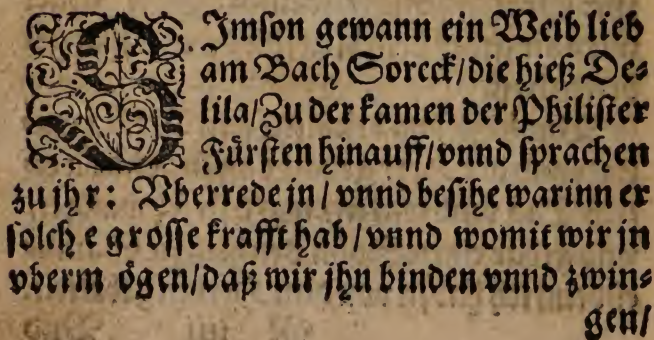 SJmſon gewann ein Weib lieb
am Bach Sorcck/die hieß De⸗
lila/Zu der kamen der Philiſter
Fürſten hinauff/vnnd ſprachen
zu jhr: Vberrede jn / vnnd beſihe warinn er
ſolch e groſſe krafft hab / vnnd womit wir jn
vberm ögen/daß wir jhn binden vnnd zwin⸗
gen/